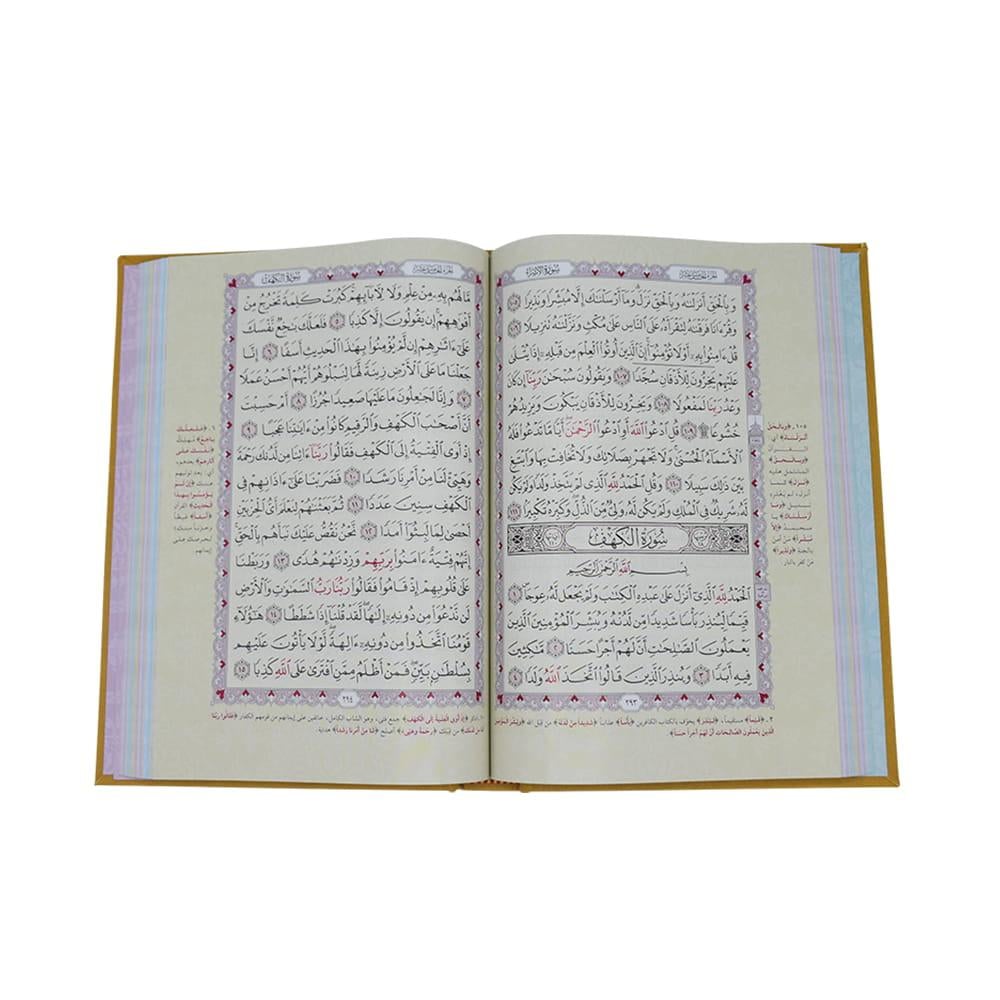 سورة الإسراء
الجزء الخامس عشر
وَبِالْحَقِّ أَنزَلْنَاهُ وَبِالْحَقِّ نَزَلَ وَمَا أَرْسَلْنَاكَ إِلَّا مُبَشِّرًا وَنَذِيرًا ١٠٥
وَقُرْءَانًا فَرَقْنَاهُ لِتَقْرَأَهُ عَلَى النَّاسِ عَلَىٰ مُكْثٍ وَنَزَّلْنَاهُ تَنزِيلًا ١٠٦
قُلْ ءَامِنُوا بِهِ أَوْ لَا تُؤْمِنُوا إِنَّ الَّذِينَ أُوتُوا الْعِلْمَ مِن قَبْلِهِ إِذَا يُتْلَىٰ
عَلَيْهِمْ يَخِرُّونَ لِلْأَذْقَانِ سُجَّدًا ١٠٧ وَيَقُولُونَ سُبْحَانَ رَبِّنَا إِن كَانَ
وَعْدُ رَبِّنَا لَمَفْعُولًا ١٠٨ وَيَخِرُّونَ لِلْأَذْقَانِ يَبْكُونَ وَيَزِيدُهُمْ
خُشُوعًا ۩ ١٠٩ قُلِ ادْعُوا اللَّهَ أَوِ ادْعُوا الرَّحْمَٰنَ أَيًّا مَّا تَدْعُوا فَلَهُ
الْأَسْمَاءُ الْحُسْنَىٰ وَلَا تَجْهَرْ بِصَلَاتِكَ وَلَا تُخَافِتْ بِهَا وَابْتَغِ
بَيْنَ ذَٰلِكَ سَبِيلًا ١١٠ وَقُلِ الْحَمْدُ لِلَّهِ الَّذِي لَمْ يَتَّخِذْ وَلَدًا وَلَمْ يَكُن
لَّهُ شَرِيكٌ فِي الْمُلْكِ وَلَمْ يَكُن لَّهُ وَلِيٌّ مِّنَ الذُّلِّ وَكَبِّرْهُ تَكْبِيرًا ١١١
سُورَةُ الْكَهْفِ
بِسْمِ اللَّهِ الرَّحْمَٰنِ الرَّحِيمِ
الْحَمْدُ لِلَّهِ الَّذِي أَنزَلَ عَلَىٰ عَبْدِهِ الْكِتَابَ وَلَمْ يَجْعَل لَّهُ عِوَجَا ١
قَيِّمًا لِّيُنذِرَ بَأْسًا شَدِيدًا مِّن لَّدُنْهُ وَيُبَشِّرَ الْمُؤْمِنِينَ الَّذِينَ
يَعْمَلُونَ الصَّالِحَاتِ أَنَّ لَهُمْ أَجْرًا حَسَنًا ٢ مَّاكِثِينَ
فِيهِ أَبَدًا ٣ وَيُنذِرَ الَّذِينَ قَالُوا اتَّخَذَ اللَّهُ وَلَدًا ٤
٢٩٣
سورة الكهف
الجزء الخامس عشر
مَّا لَهُم بِهِ مِنْ عِلْمٍ وَلَا لِآبَائِهِمْ كَبُرَتْ كَلِمَةً تَخْرُجُ مِنْ
أَفْوَاهِهِمْ إِن يَقُولُونَ إِلَّا كَذِبًا ٥ فَلَعَلَّكَ بَاخِعٌ نَّفْسَكَ
عَلَىٰ ءَاثَارِهِمْ إِن لَّمْ يُؤْمِنُوا بِهَٰذَا الْحَدِيثِ أَسَفًا ٦ إِنَّا
جَعَلْنَا مَا عَلَى الْأَرْضِ زِينَةً لَّهَا لِنَبْلُوَهُمْ أَيُّهُمْ أَحْسَنُ عَمَلًا
٧ وَإِنَّا لَجَاعِلُونَ مَا عَلَيْهَا صَعِيدًا جُرُزًا ٨ أَمْ حَسِبْتَ
أَنَّ أَصْحَابَ الْكَهْفِ وَالرَّقِيمِ كَانُوا مِنْ ءَايَاتِنَا عَجَبًا ٩
إِذْ أَوَى الْفِتْيَةُ إِلَى الْكَهْفِ فَقَالُوا رَبَّنَا ءَاتِنَا مِن لَّدُنكَ رَحْمَةً
وَهَيِّئْ لَنَا مِنْ أَمْرِنَا رَشَدًا ١٠ فَضَرَبْنَا عَلَىٰ ءَاذَانِهِمْ فِي
الْكَهْفِ سِنِينَ عَدَدًا ١١ ثُمَّ بَعَثْنَاهُمْ لِنَعْلَمَ أَيُّ الْحِزْبَيْنِ
أَحْصَىٰ لِمَا لَبِثُوا أَمَدًا ١٢ نَّحْنُ نَقُصُّ عَلَيْكَ نَبَأَهُم بِالْحَقِّ
إِنَّهُمْ فِتْيَةٌ ءَامَنُوا بِرَبِّهِمْ وَزِدْنَاهُمْ هُدًى ١٣ وَرَبَطْنَا
عَلَىٰ قُلُوبِهِمْ إِذْ قَامُوا فَقَالُوا رَبُّنَا رَبُّ السَّمَاوَاتِ وَالْأَرْضِ
لَن نَّدْعُوَا مِن دُونِهِ إِلَٰهًا لَّقَدْ قُلْنَا إِذًا شَطَطًا ١٤ هَٰؤُلَاءِ
قَوْمُنَا اتَّخَذُوا مِن دُونِهِ ءَالِهَةً لَّوْلَا يَأْتُونَ عَلَيْهِم
بِسُلْطَانٍ بَيِّنٍ فَمَنْ أَظْلَمُ مِمَّنِ افْتَرَىٰ عَلَى اللَّهِ كَذِبًا ١٥
٢٩٤